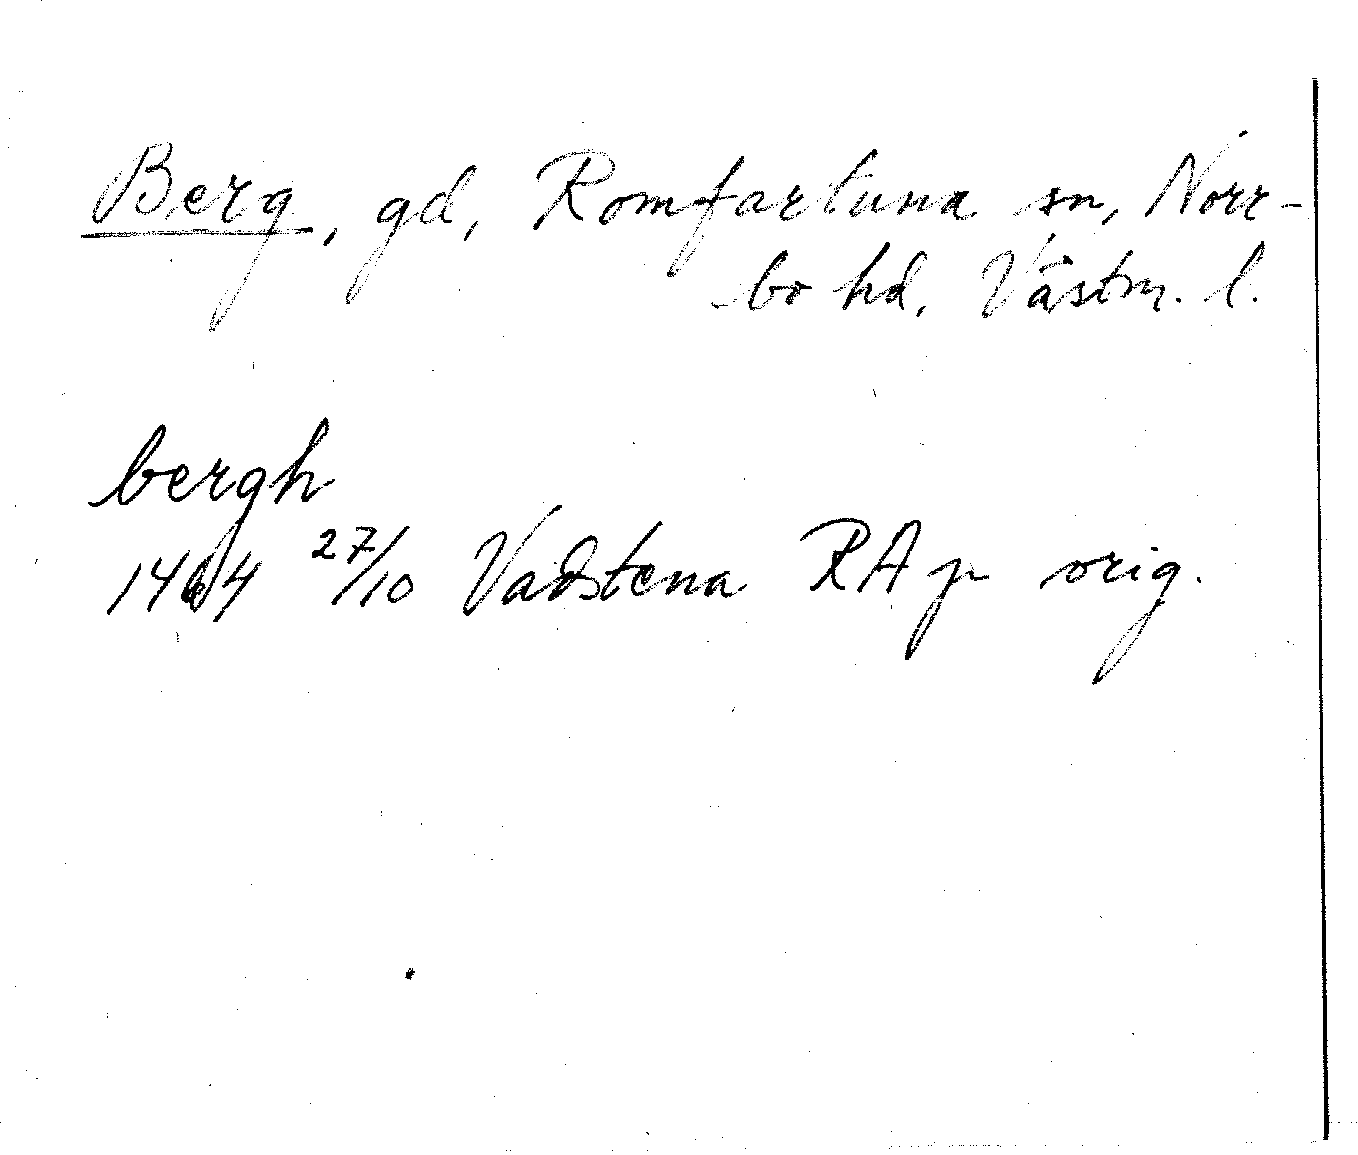 Berg, gd, Romfartuna sn, Norr-
bo hd, Västm. l.
bergh
1464 27/10 Vadstena RA p orig.